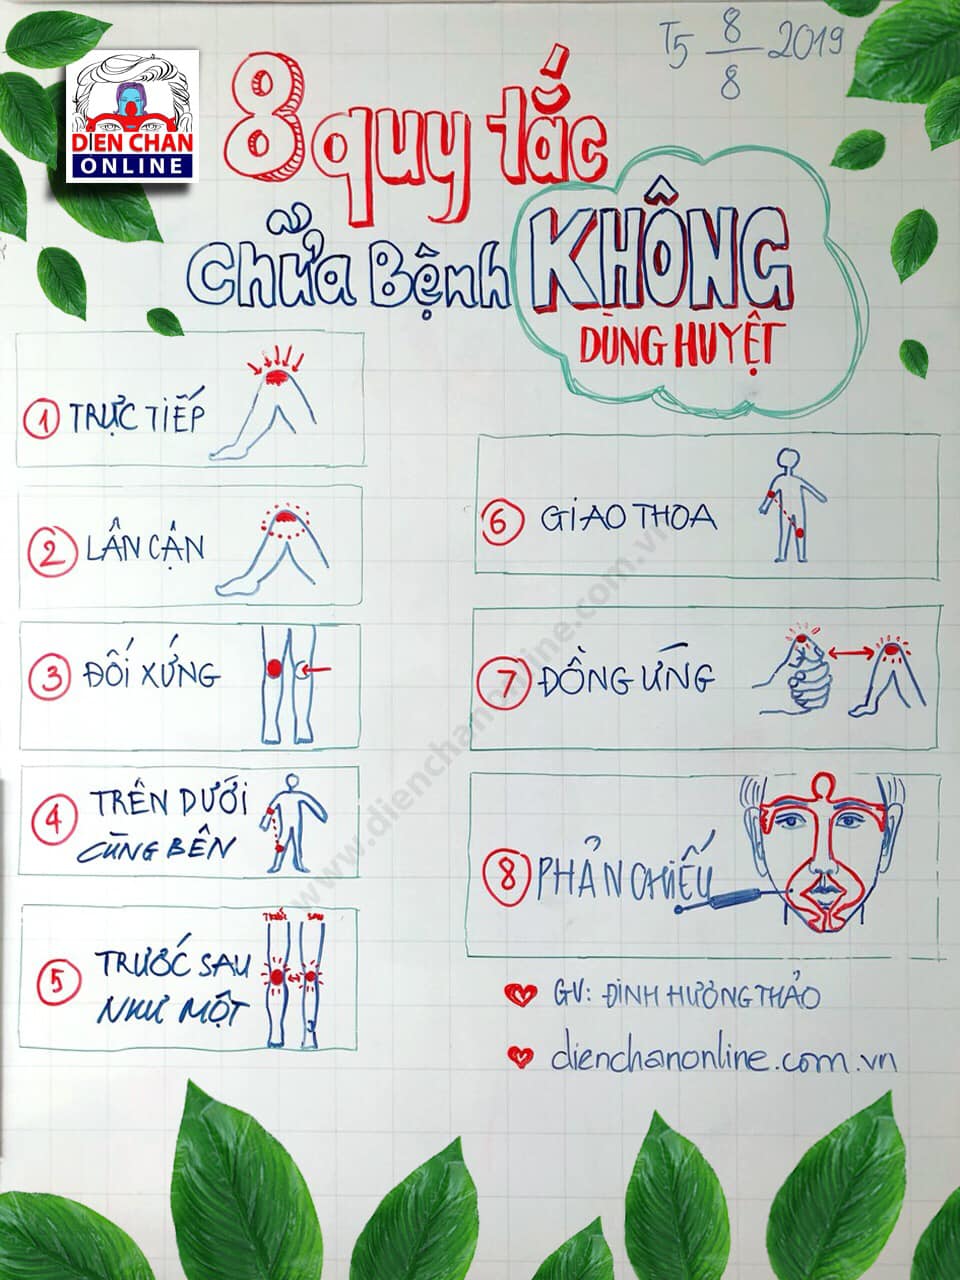 DIEN CHAN
ONLINE
T5 8/8 2019
8 quy tắc
Chữa Bệnh KHÔNG
DÙNG HUYỆT
1 TRỰC TIẾP
2 LÂN CẬN
3 ĐỐI XỨNG
4 TRÊN DƯỚI
CÙNG BÊN
5 TRƯỚC SAU
NHƯ MỘT
TRƯỚC SAU
6 GIAO THOA
7 ĐỒNG ỨNG
8 PHẢN CHIẾU
GV: ĐINH HƯƠNG THẢO
dienchanonline.com.vn
www.dienchanonline.com.vn